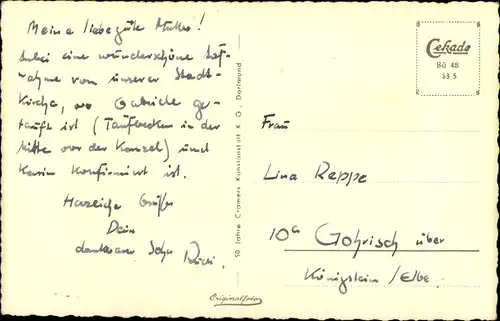 Meine liebe gute Mutter!
Anbei eine wunderschöne Auf-
nahme von unserer Stadt-
Kirche, wo Gabriele ge-
tauft ist (Taufbecken in der
Mitte vor der Kanzel) und
Karin konfirmiert ist.
Herzliche Grüße
Dein
dankbarer Sohn Rudi.
50 Jahre Cramers Kunstanstalt K. G., Dortmund
Originalfoto
Cekade
Bü 48
53 5
Frau
Lina Reppe
10a Gohrisch über
Königstein/Elbe.